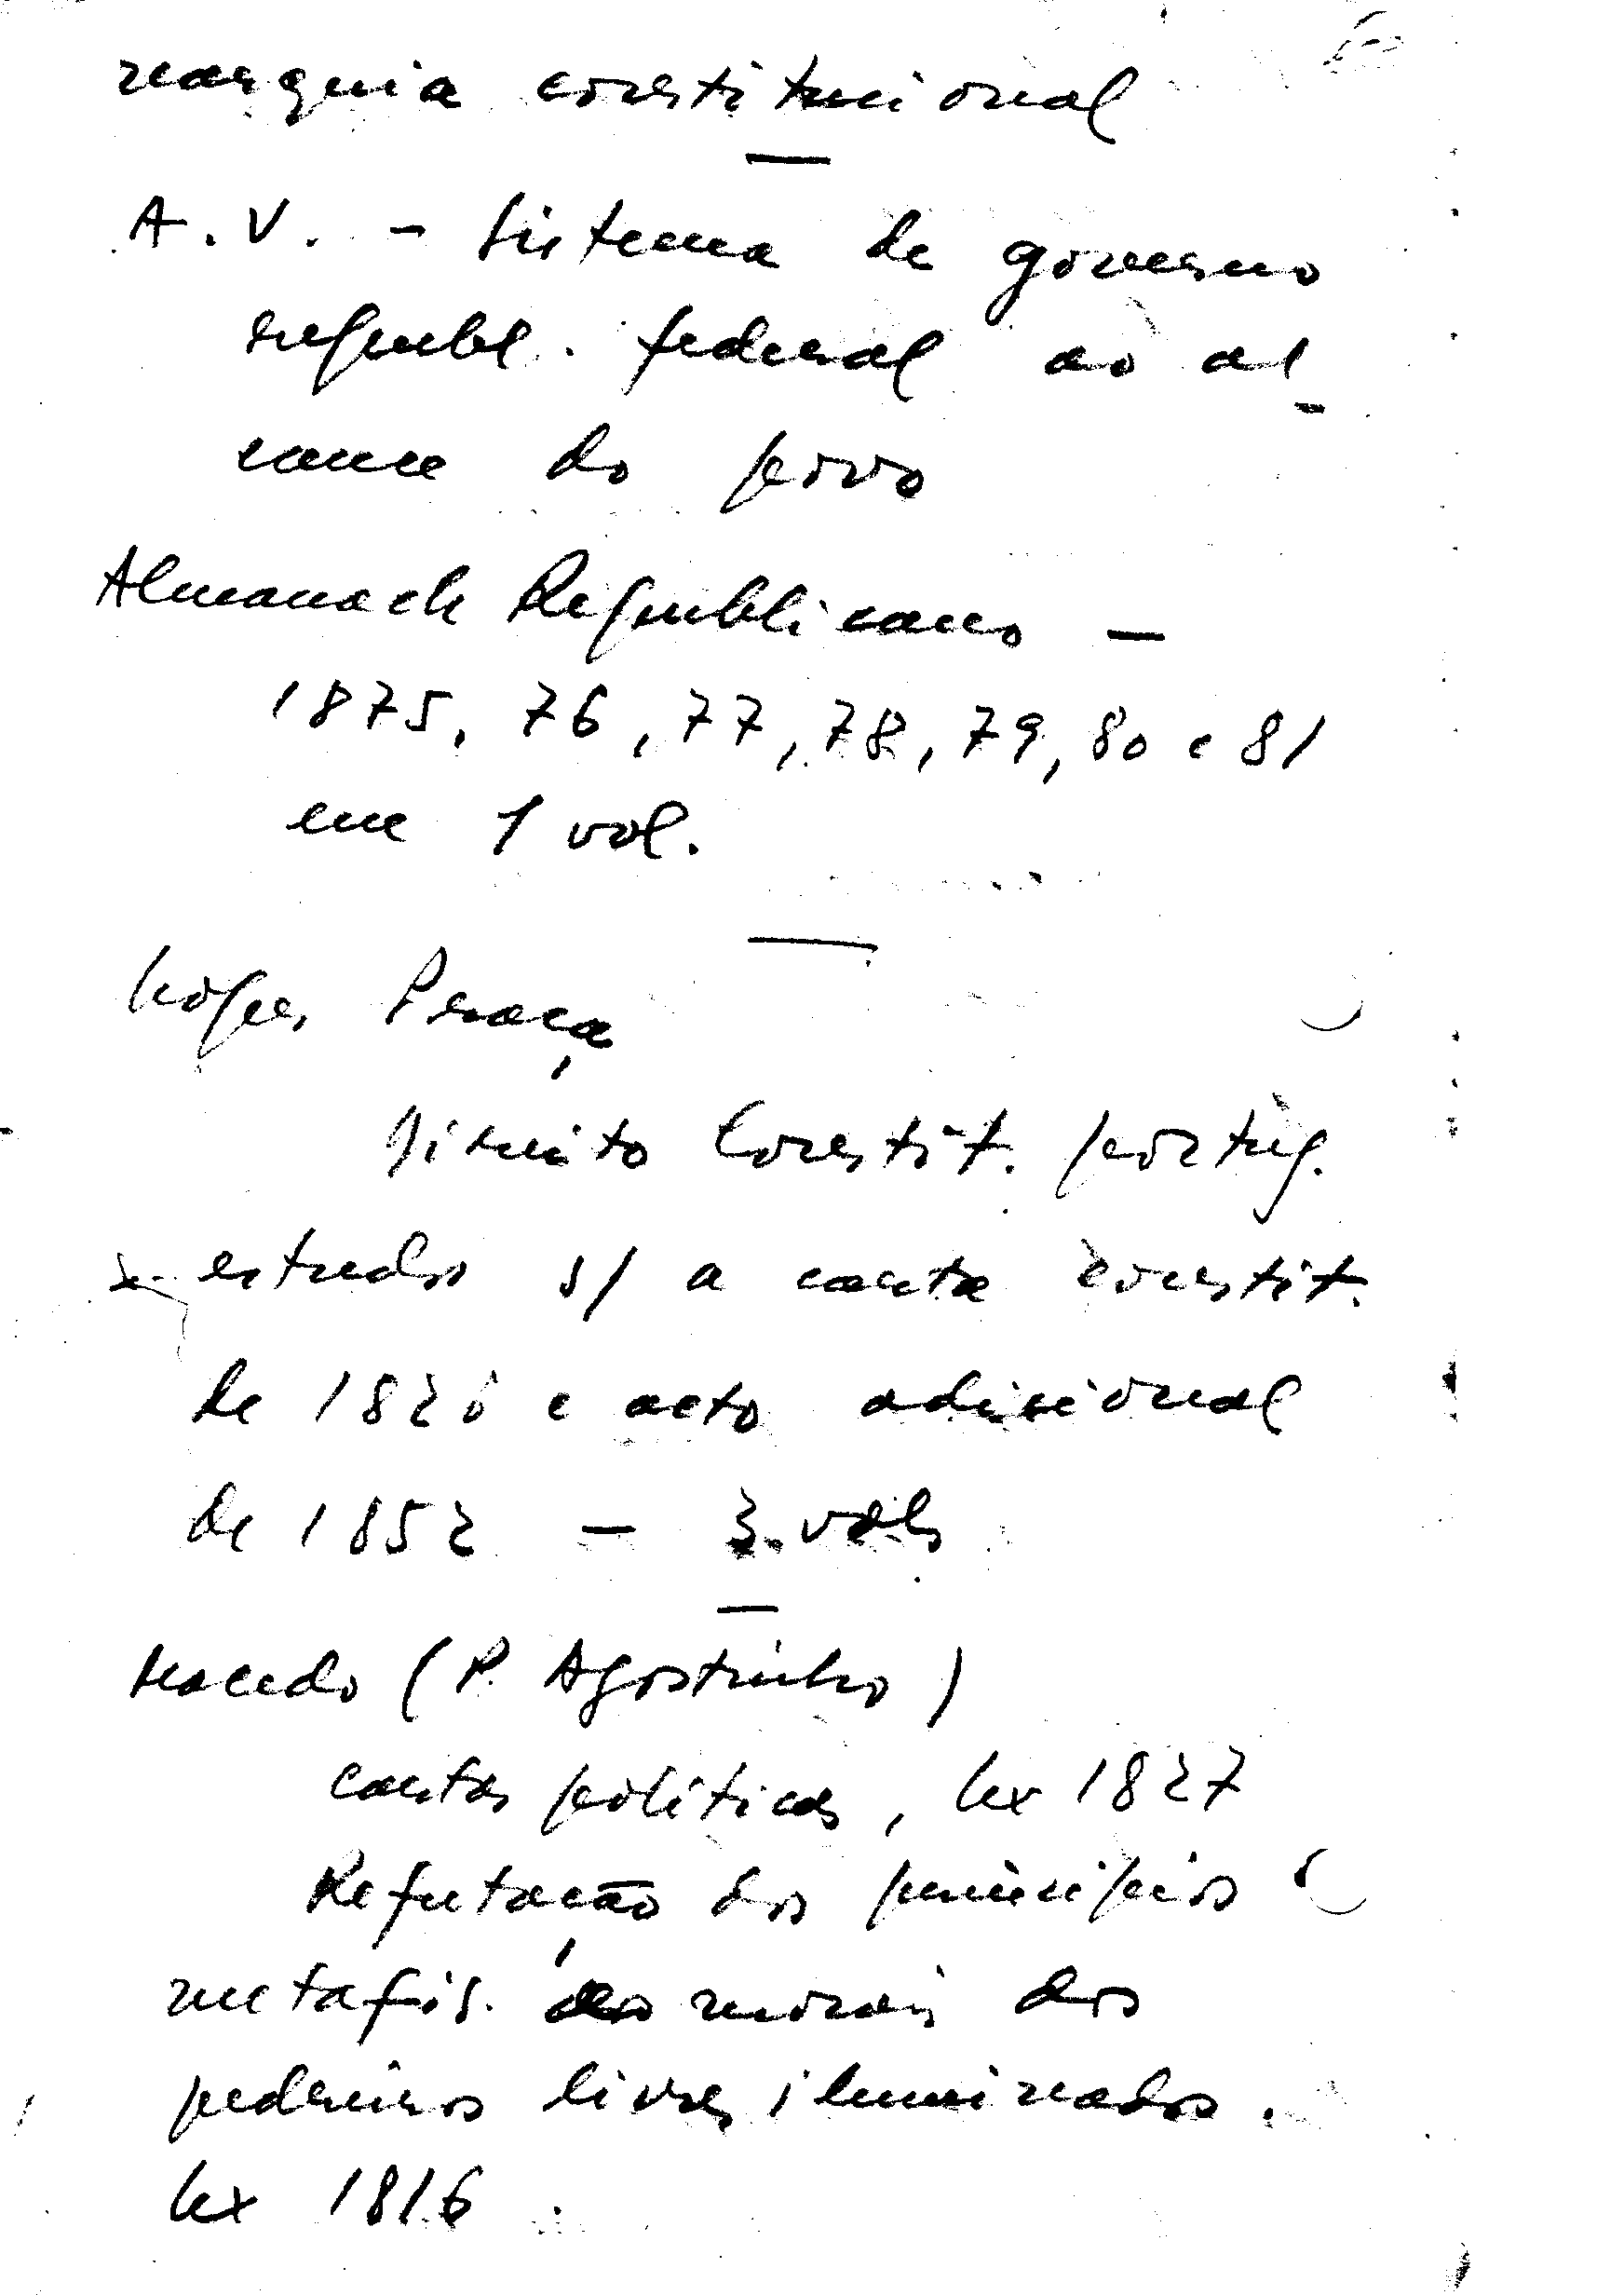 narquia constitucional
A. V. - Sistema de governo
republ. federal ao al
cance do povo
Almanach Republicano -
1875, 76, 77, 78, 79, 80 e 81
em 1 vol.
Lopes Praça
Direito Constit. portug.
estudos s/ a carta constit.
de 1826 e acto adicional
de 1852 - 3 vols
Macedo (P. Agostinho)
Cartas políticas, Lx 1827
Refutação dos princípios
metafís. morais dos
pedreiros livres iluminados.
Lx 1816